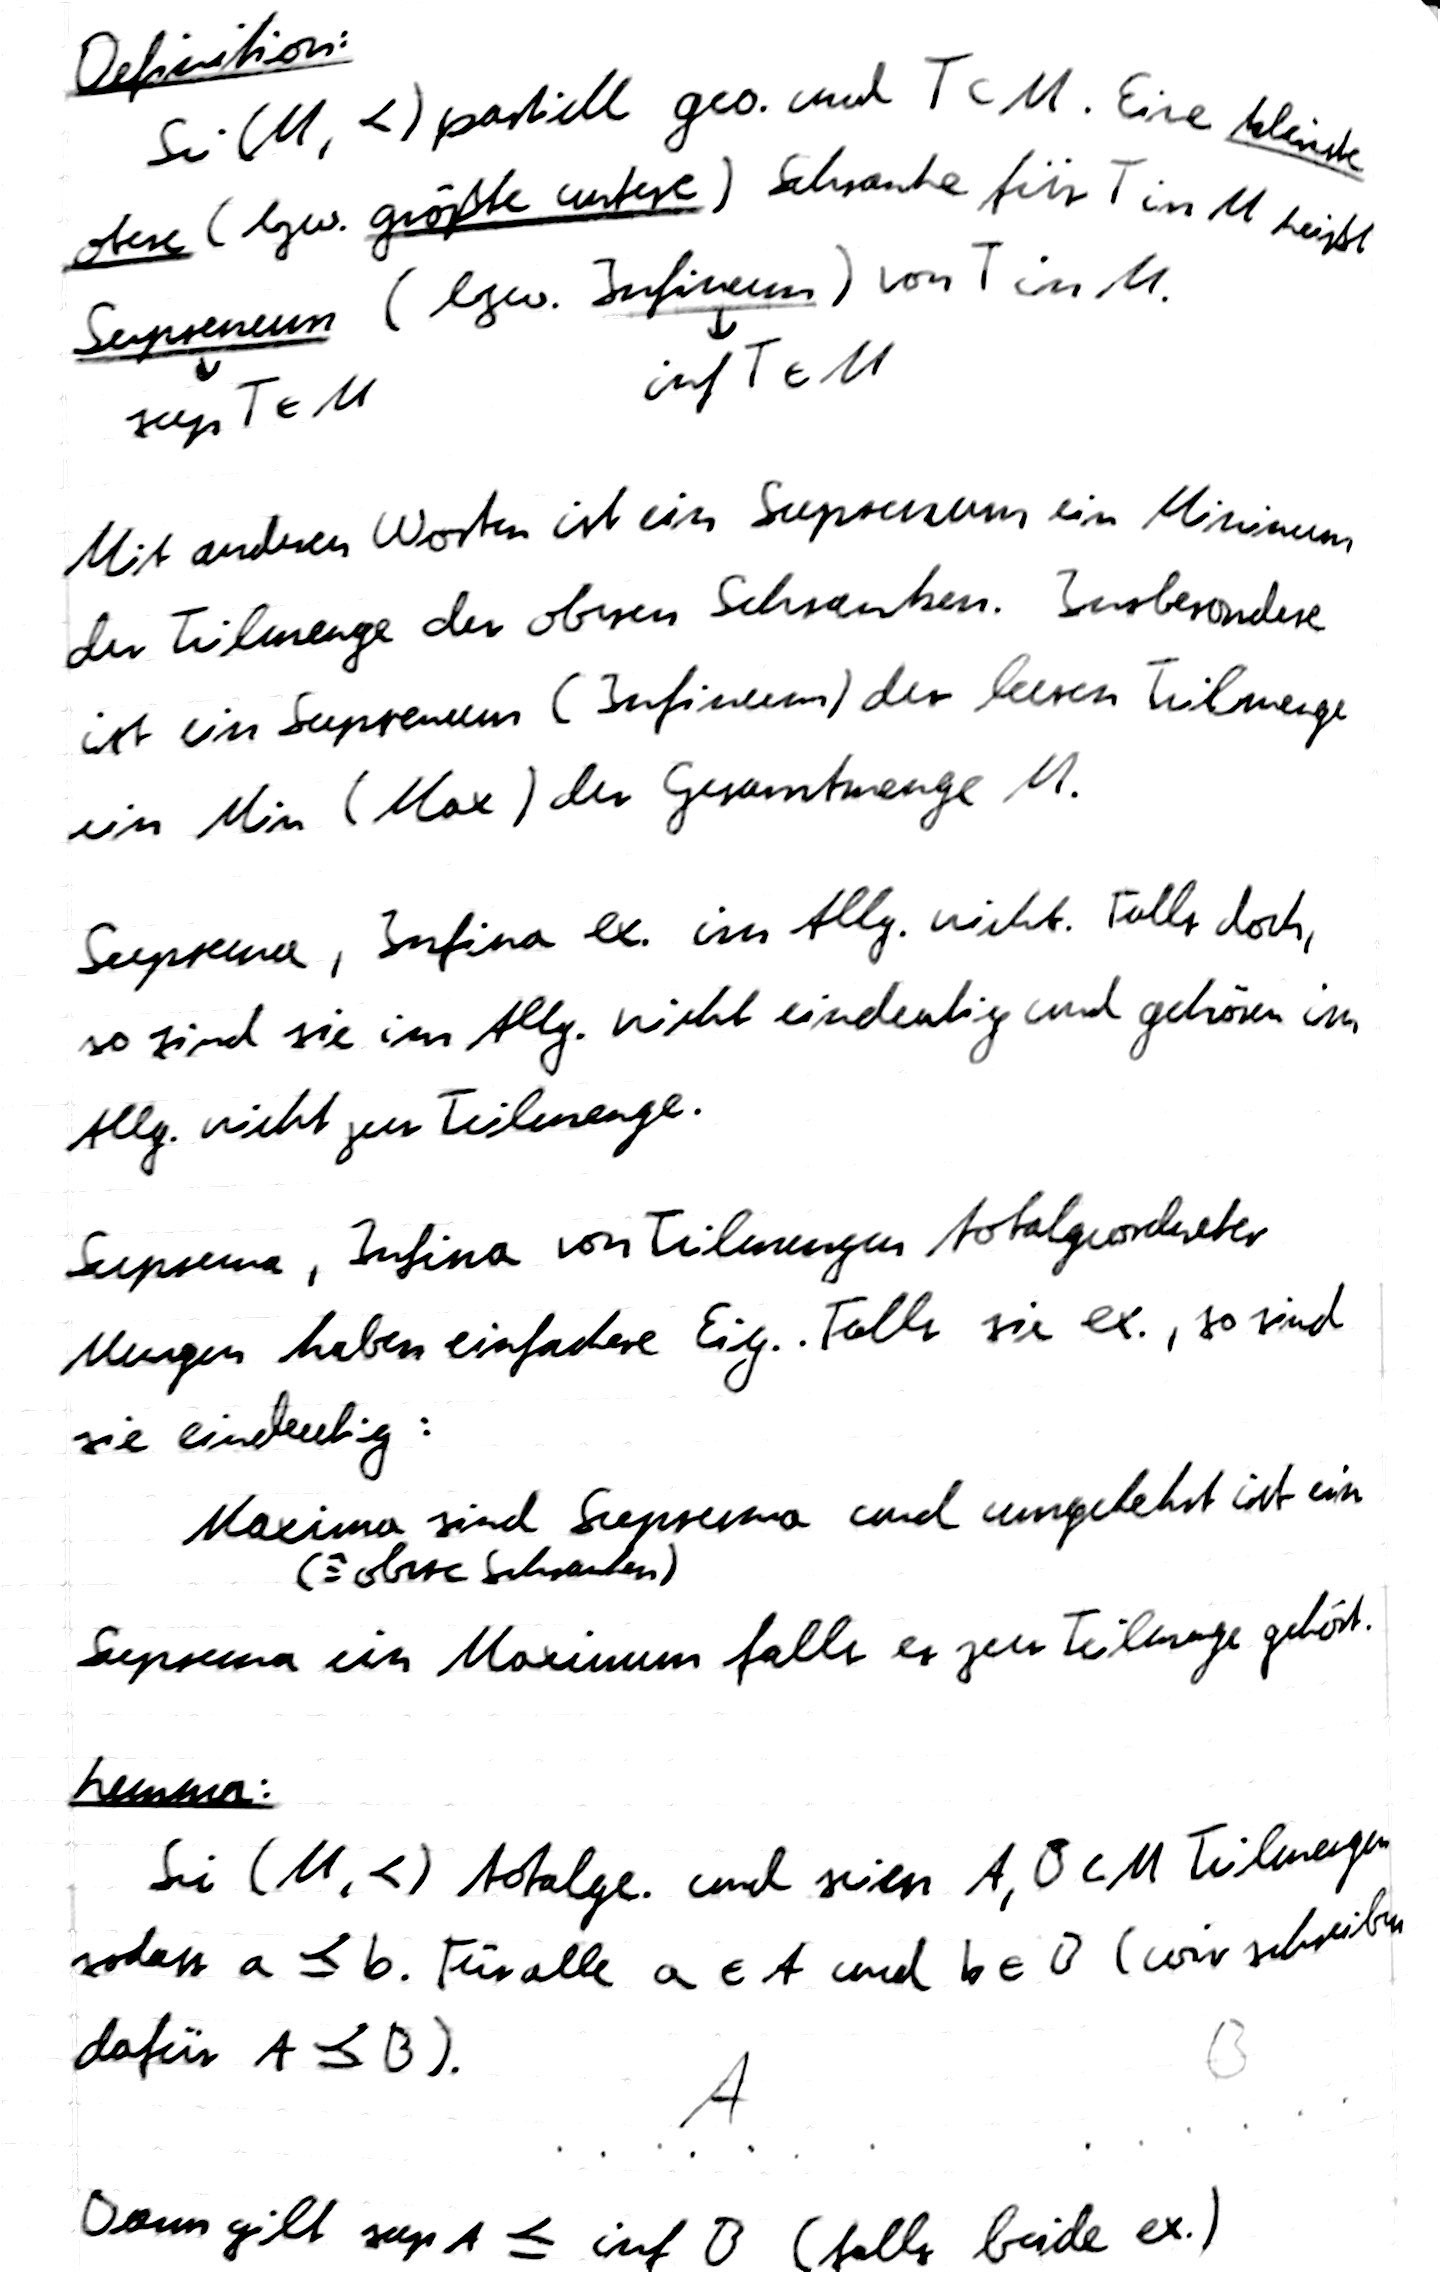 Definition:
Sei (M, <) partiell geo. und T ⊂ M. Eine kleinste
obere (bzw. größte untere) Schranke für T in M heißt
Supremum (bzw. Infimum) von T in M.
↓ ↓
sup T ∈ M inf T ∈ M
Mit anderen Worten ist ein Supremum ein Minimum
der Teilmenge der oberen Schranken. Insbesondere
ist ein Supremum (Infimum) der leeren Teilmenge
ein Min (Max) der Gesamtmenge M.
Suprema, Infima ex. im Allg. nicht. Falls doch,
so sind sie im Allg. nicht eindeutig und gehören im
Allg. nicht zur Teilmenge.
Suprema, Infima von Teilmengen totalgeordneter
Mengen haben einfachere Eig.. Falls sie ex., so sind
sie eindeutig:
Maxima sind Suprema und umgekehrt ist ein
(≙ obere Schranken)
Suprema ein Maximum falls es zur Teilmenge gehört.
Lemma:
Sei (M, <) totalge. und seien A, B ⊂ M Teilmengen
sodass a ≤ b. Für alle a ∈ A und b ∈ B (wir schreiben
dafür A ≤ B).
A B
Dann gilt sup A ≤ inf B (falls beide ex.)